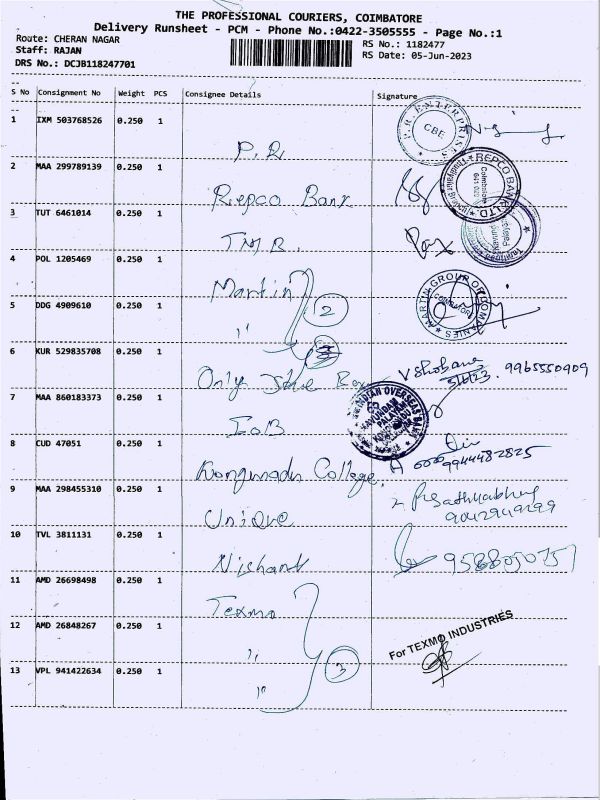 THE PROFESSIONAL COURIERS, COIMBATORE
Delivery Runsheet - PCM - Phone No.:0422-3505555 - Page No.:1
Route: CHERAN NAGAR RS No.: 1182477
Staff: RAJAN RS Date: 05-Jun-2023
DRS No.: DCJB118247701
S No Consignment No Weight PCS Consignee Details Signature
1 IXM 503768526 0.250 1
P.R
P.R. ENTERPRISES CBE
2 MAA 299789139 0.250 1
Repco Bank
REPCO BANK LTD.
3 TUT 6461014 0.250 1
T.M.B.
4 POL 1205469 0.250 1
Martin
MARTIN GROUP OF COMPANIES
5 DDG 4909610 0.250 1
" 2
6 KUR 529835708 0.250 1
Only
9965550909
7 MAA 860183373 0.250 1
IOB
INDIAN OVERSEAS BANK
8 CUD 47051 0.250 1
Kongunadu College.
9944482825
9 MAA 298455310 0.250 1
Unique
10 TVL 3811131 0.250 1
Nishant
11 AMD 26698498 0.250 1
Texmo
12 AMD 26848267 0.250 1
"
For TEXMO INDUSTRIES
13 VPL 941422634 0.250 1
" 3